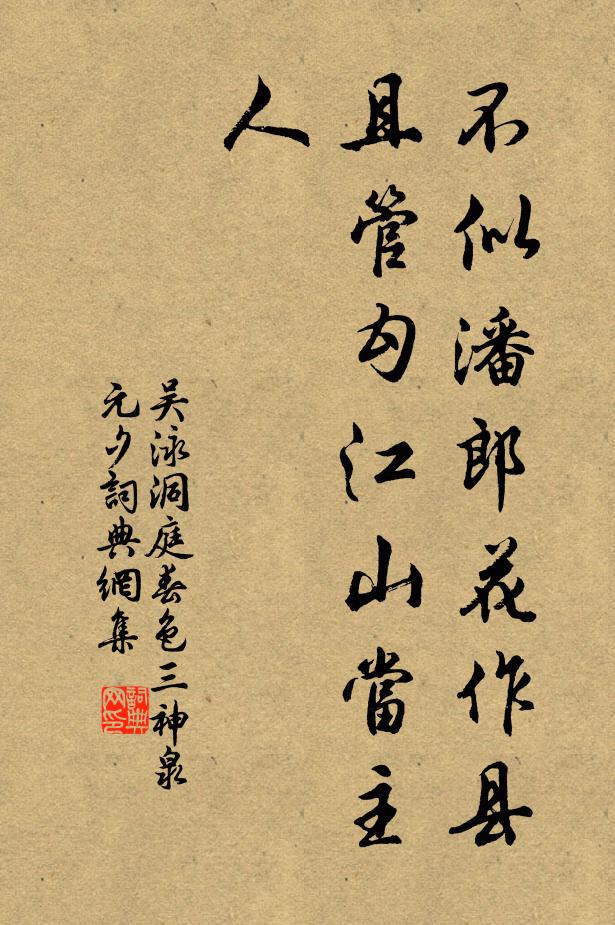 不似潘郎花作县
且管勾江山當主
人
吴泳洞庭春色三神泉
元夕詞典網集
詞典
网印